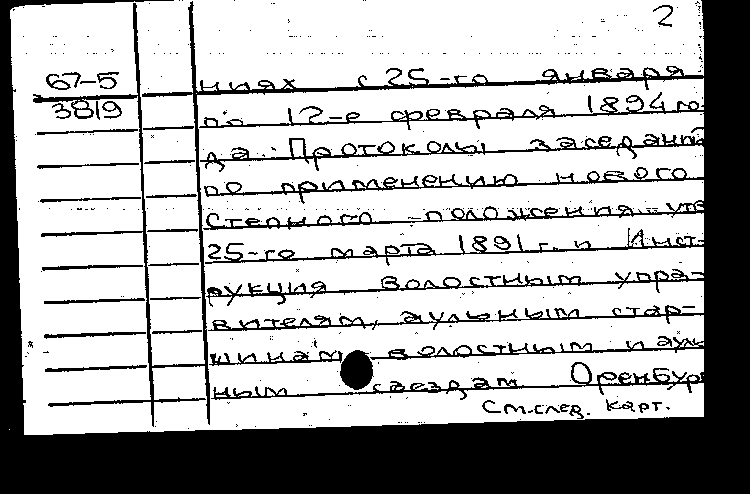 2
67-5
3819
ниях с 25-го января
по 12-е февраля 1894 го-
да. Протоколы заседаний
по применению нового
Степного положения утв
25-го марта 1891 г. и Инст-
рукция волостным упра-
вителям, аульным стар-
шинам волостным и ауль
ным съездам Оренбург
См. след. карт.